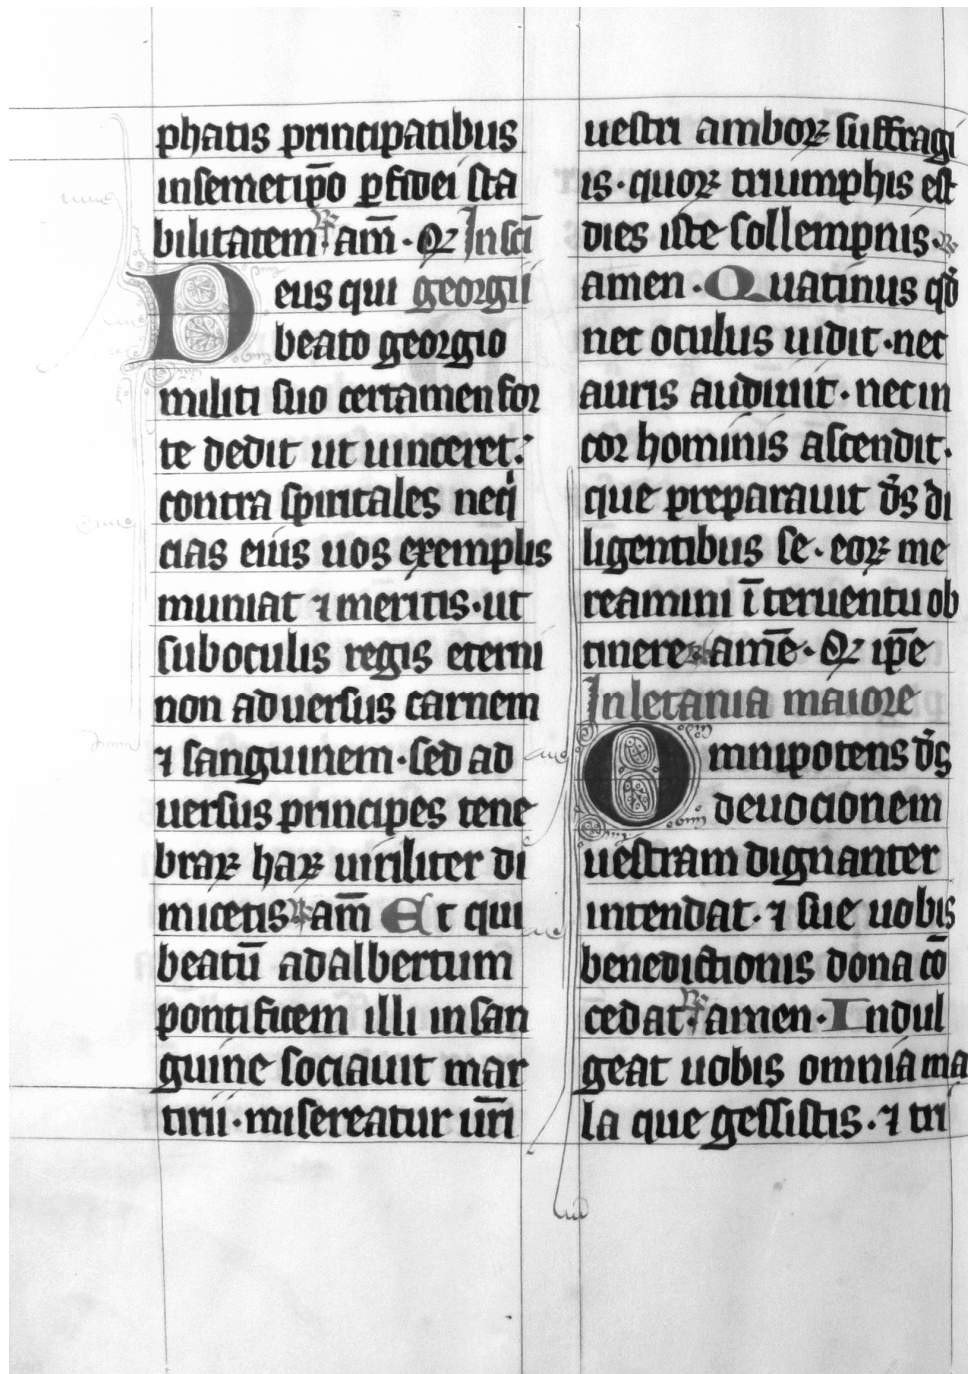 phatis principatibus
insemetip̄o ꝑ fidei sta
bilitatem ℟ am̄ · Qꝛ In sc̄i
Deus qui georgii
beato georgio
militi suo certamen for
te dedit ut uinceret:
contra spiritales neqͥ
cias eius uos exemplis
muniat ⁊ meritis · ut
sub oculis regis eterni
non aduersus carnem
⁊ sanguinem · sed ad
uersus principes tene
braꝝ haꝝ uiriliter di
micetis ℟ am̄ Et qui
beatū adalbertum
pontificem illi in san
guine sociauit mar
tirii · misereatur ur̄i
uestri amboꝝ suffragi
is · quoꝝ triumphis est
dies iste sollempnis · ℟
amen · Quatinus qd̄
nec oculus uidit · nec
auris audiuit · nec in
cor hominis ascendit ·
que preparauit d̄s di
ligentibus se · eoꝝ me
reamini īteruentu ob
tinere ℟ amē · Qꝛ ip̄e
In letania maiore
Omnipotens d̄s
deuocionem
uestram dignanter
intendat · ⁊ sue uobis
benedictionis dona cō
cedat ℟ amen · Indul
geat uobis omnia ma
la que gessistis · ⁊ tri